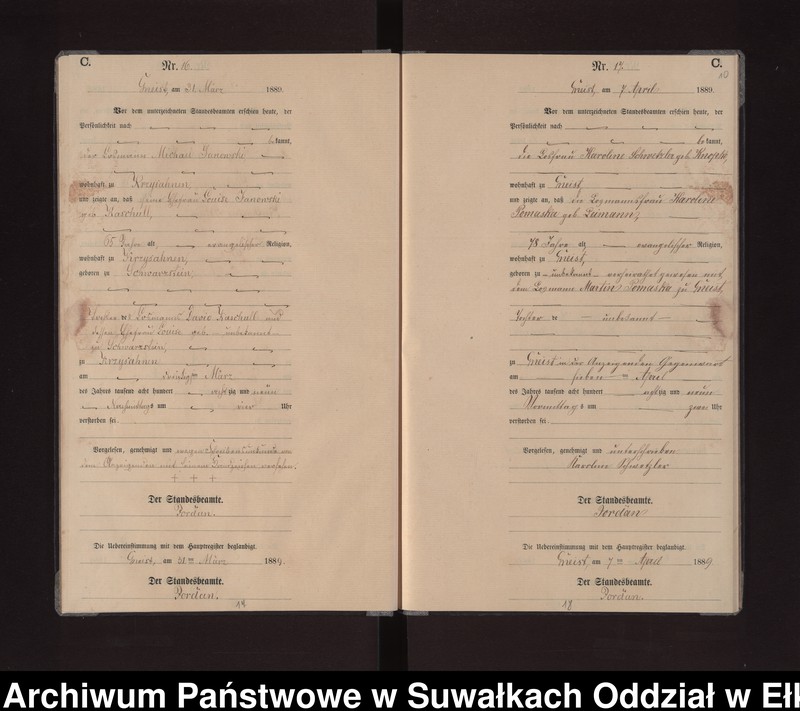 C.
Nr. 16.
Gneist, am 31. März 1889.
Vor dem unterzeichneten Standesbeamten erschien heute, der
Persönlichkeit nach
bekannt,
der Losmann Michael Janowski
wohnhaft zu Krzysahnen,
und zeigte an, daß seine Ehefrau Louise Janowski
geb. Kaschull,
65 Jahre alt, evangelischer Religion,
wohnhaft zu Krzysahnen,
geboren zu Schwarzstein,
Tochter des Losmanns David Kaschull und
dessen Ehefrau Louise geb. unbekannt
zu Schwarzstein,
zu Krzysahnen
am dreißigten März
des Jahres tausend acht hundert achtzig und neun
Nachmittags um vier Uhr
verstorben sei.
Vorgelesen, genehmigt und wegen
dem Anzeigenden mit seinem Handzeichen versehen.
+ + +
Der Standesbeamte.
Jordan.
Die Uebereinstimmung mit dem Hauptregister beglaubigt.
Gneist, am 31 ten März 1889.
Der Standesbeamte.
Jordan.
18
C.
10
Nr. 17
Gneist, am 7 April 1889.
Vor dem unterzeichneten Standesbeamten erschien heute, der
Persönlichkeit nach
bekannt,
die Losfrau Karoline Schwetzler geb.
wohnhaft zu Gneist,
und zeigte an, daß die Losmannsfrau Karoline
Pomaska geb.
78 Jahre alt evangelischer Religion,
wohnhaft zu Gneist,
geboren zu unbekannt verheirathet gewesen mit
dem Losmann Martin Pomaska zu Gneist,
Tochter de unbekannt
zu Gneist in der Anzeigenden Gegenwart
am sieben ten April
des Jahres tausend acht hundert achtzig und neun
Vormittags um zwei Uhr
verstorben sei.
Vorgelesen, genehmigt und unterschrieben
Karoline Schwetzler
Der Standesbeamte.
Jordan
Die Uebereinstimmung mit dem Hauptregister beglaubigt.
Gneist, am 7 ten April 1889
Der Standesbeamte.
Jordan.
18
Archiwum Państwowe w Suwałkach Oddział w Ełk